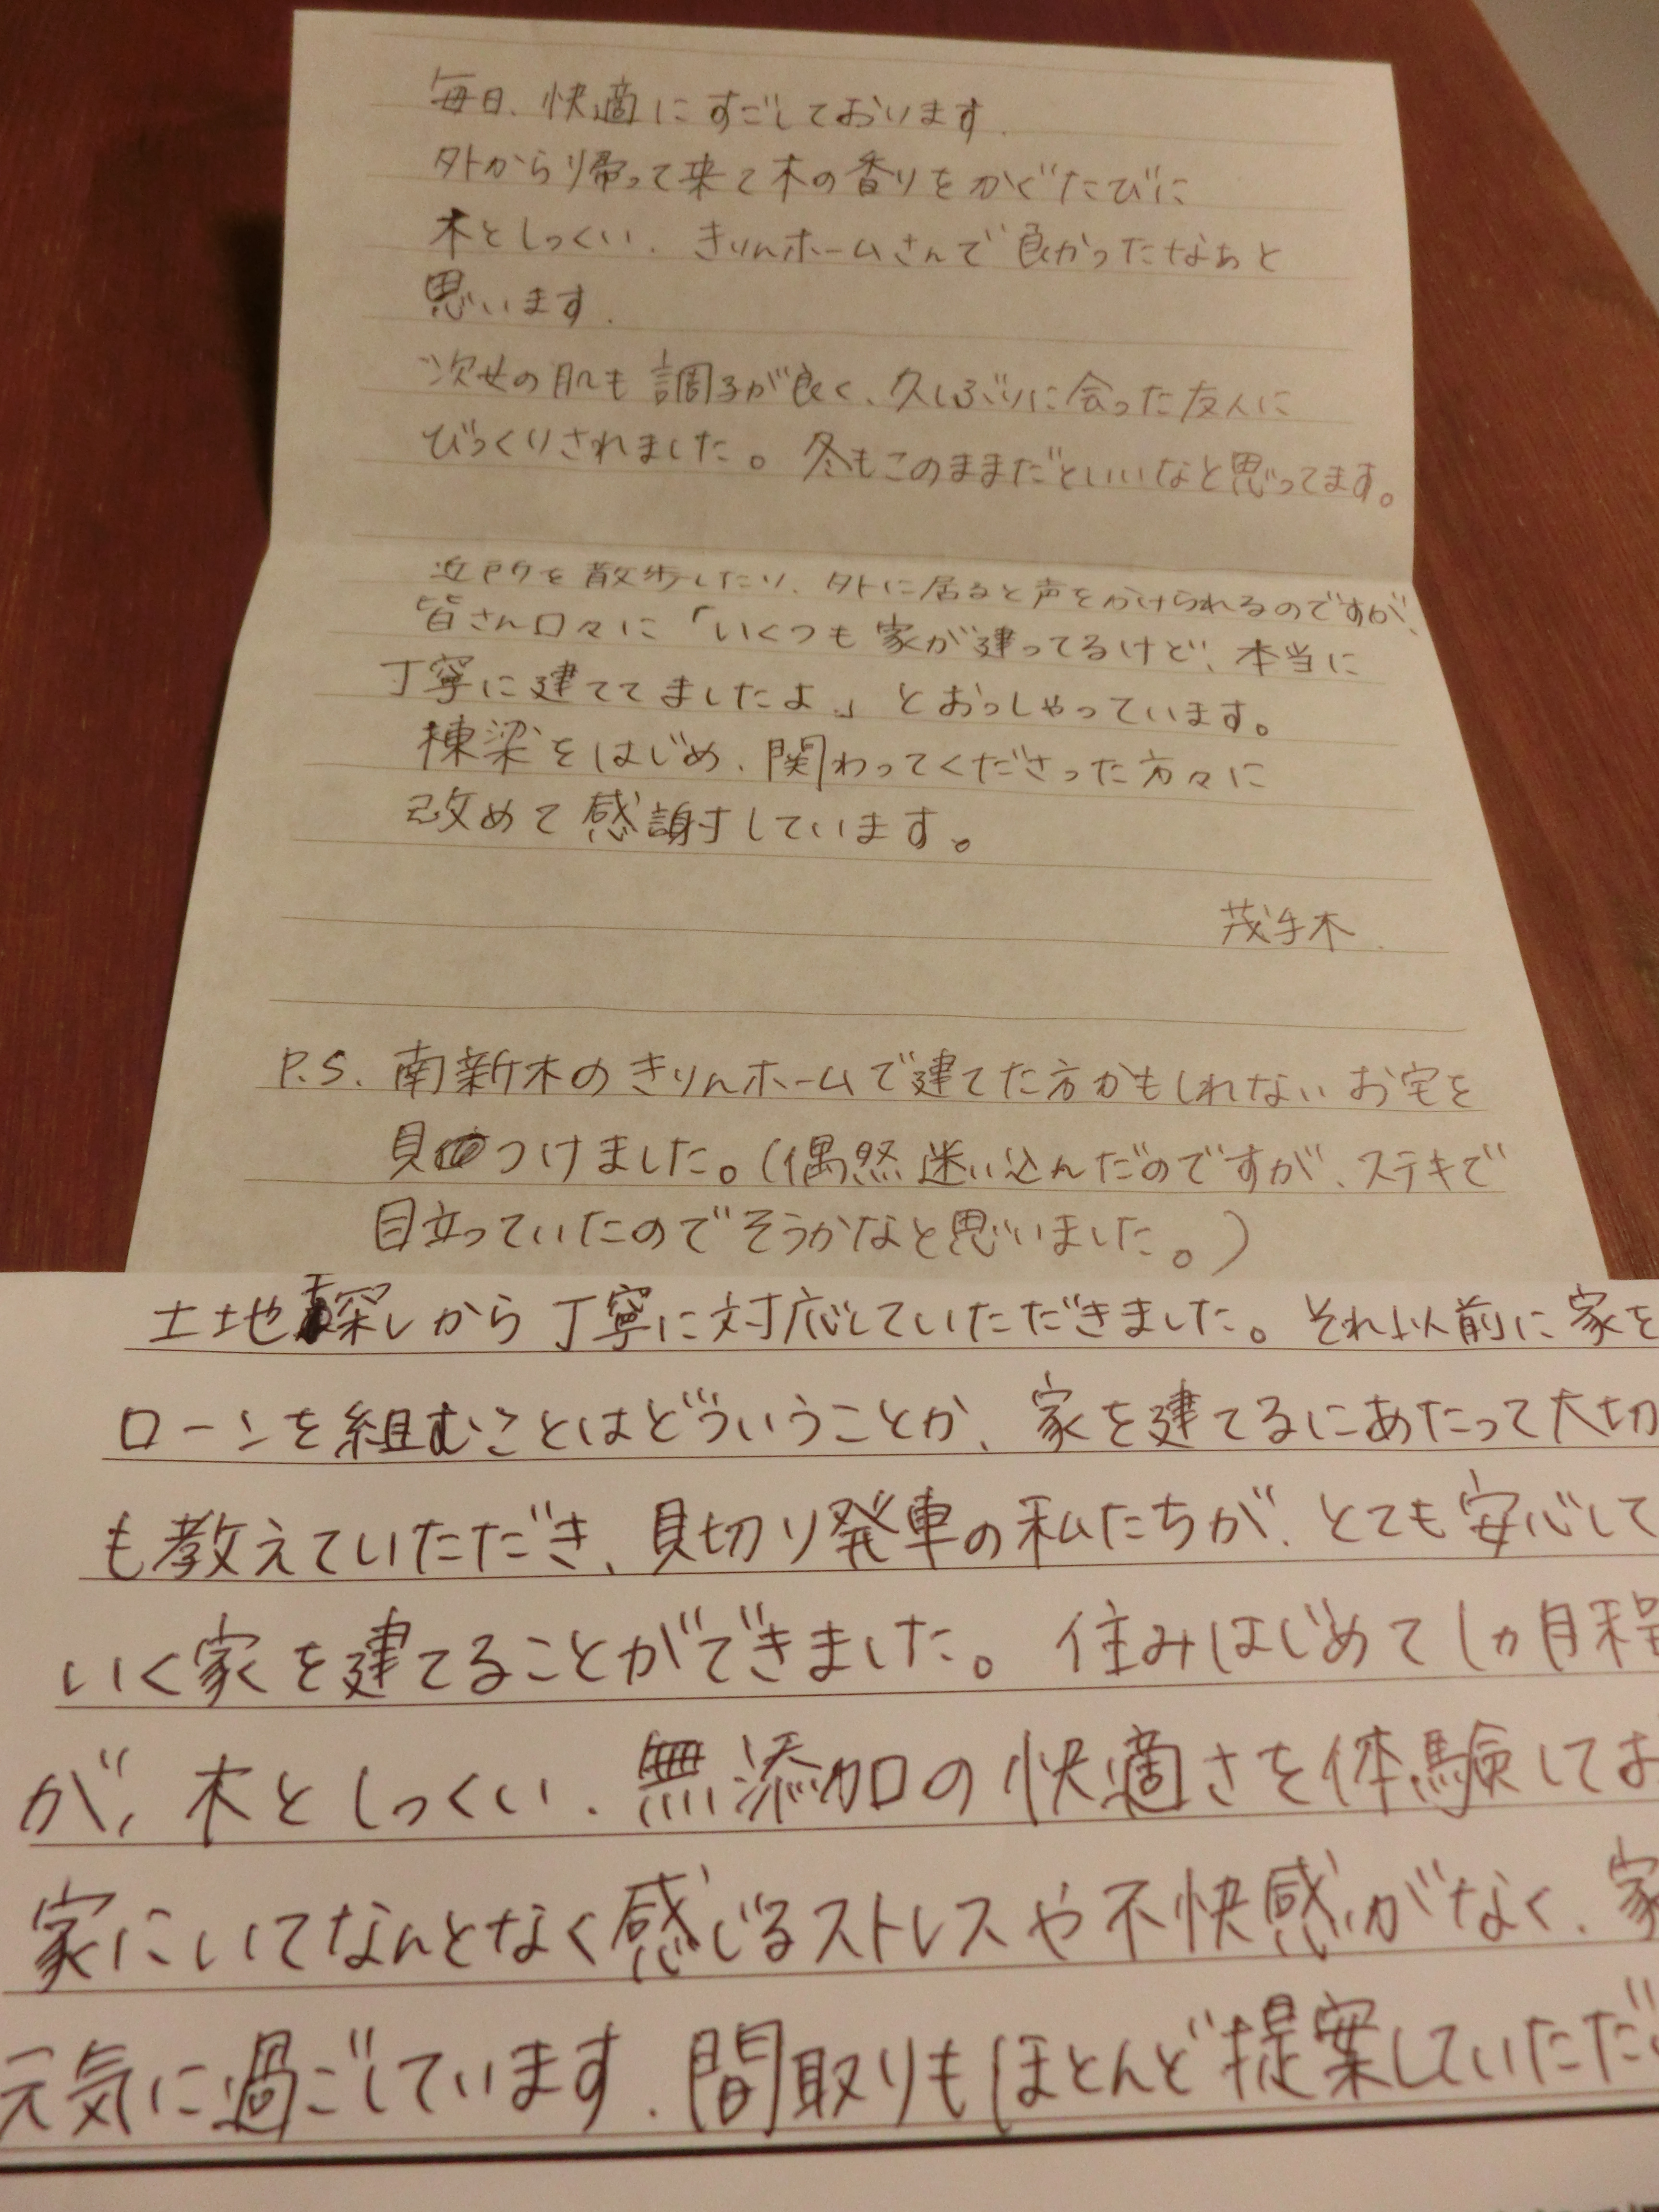 毎日、快適にすごしております。
外から帰って来て木の香りをかぐたびに
木としっくい、きりんホームさんで良かったなぁと
思います。
次せの肌も調子が良く、久しぶりに会った友人に
びっくりされました。冬もこのままだといいなと思ってます。
近所を散歩したり、外に居ると声をかけられるのですが、
皆さん口々に「いくつも家が建ってるけど、本当に
丁寧に建ててましたよ。」とおっしゃっています。
棟梁をはじめ、関わってくださった方々に
改めて感謝しています。
茂手木
P.S. 南新木のきりんホームで建てた方かもしれないお宅を
見つけました。(偶然迷い込んだのですが、ステキで
目立っていたのでそうかなと思いました。)
土地探しから丁寧に対応していただきました。それ以前に家を
ローンを組むことはどういうことか、家を建てるにあたって大切
も教えていただき、見切り発車の私たちが、とても安心して
いく家を建てることができました。住みはじめて1ヵ月程
が、木としっくい、無添加の快適さを体験してお
家にいてなんとなく感じるストレスや不快感がなく、家
元気に過ごしています。間取りもほとんど提案していただ